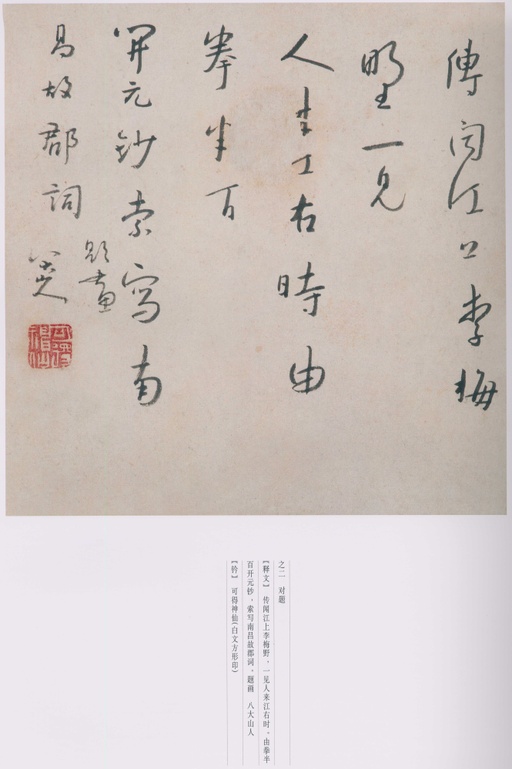 傳聞江上李梅
野一見
人来江右時由
拳半百
開元鈔索寫南
昌故郡詞
題畫
八大山人
可得神仙
之二 对题
【释文】 传闻江上李梅野，一见人来江右时。由拳半
百开元钞，索写南昌故郡词。题画 八大山人
【钤】 可得神仙(白文方形印)